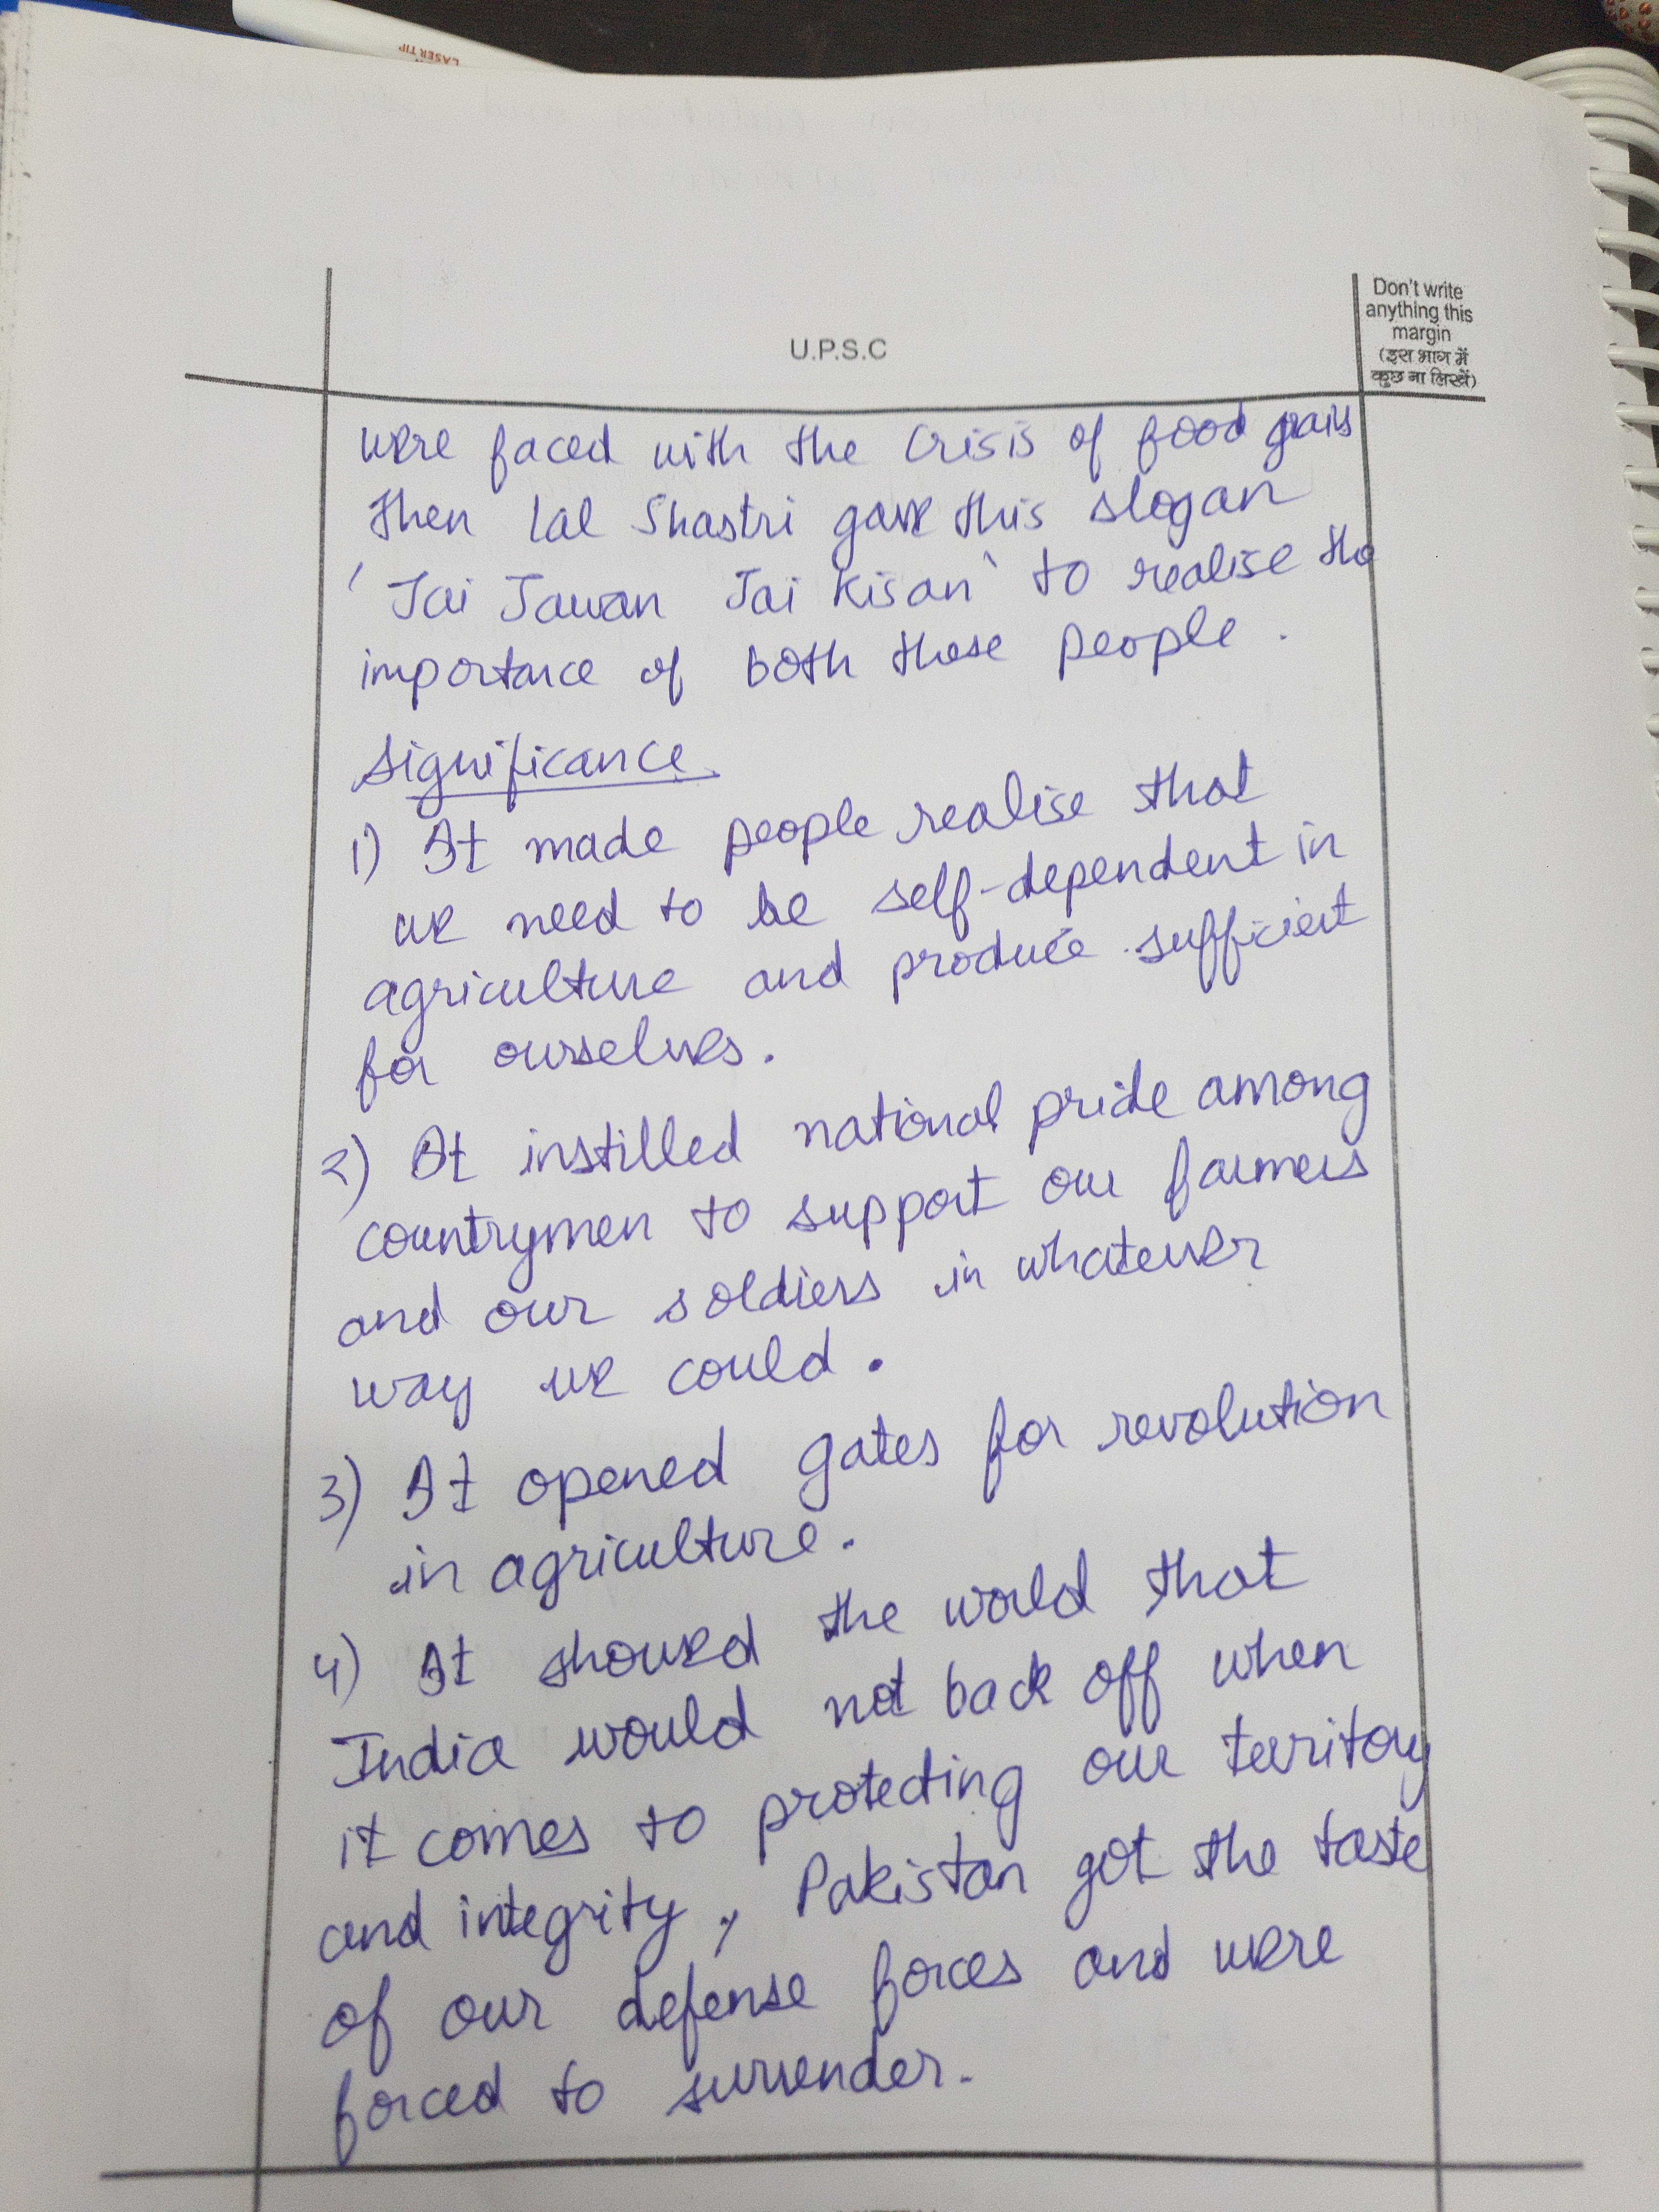 LASER TIP
U.P.S.C
Don't write
anything this
margin
(इस भाग में
कुछ ना लिखें)
were faced with the crisis of food grains
then Lal Shastri gave this slogan
'Jai Jawan Jai Kisan' to realise the
importance of both these people.
Significance
1) It made people realise that
we need to be self-dependent in
agriculture and produce sufficient
for ourselves.
2) It instilled national pride among
countrymen to support our farmers
and our soldiers in whatever
way we could.
3) It opened gates for revolution
in agriculture.
4) It showed the world that
India would not back off when
it comes to protecting our territory
and integrity, Pakistan got the taste
of our defense forces and were
forced to surrender.